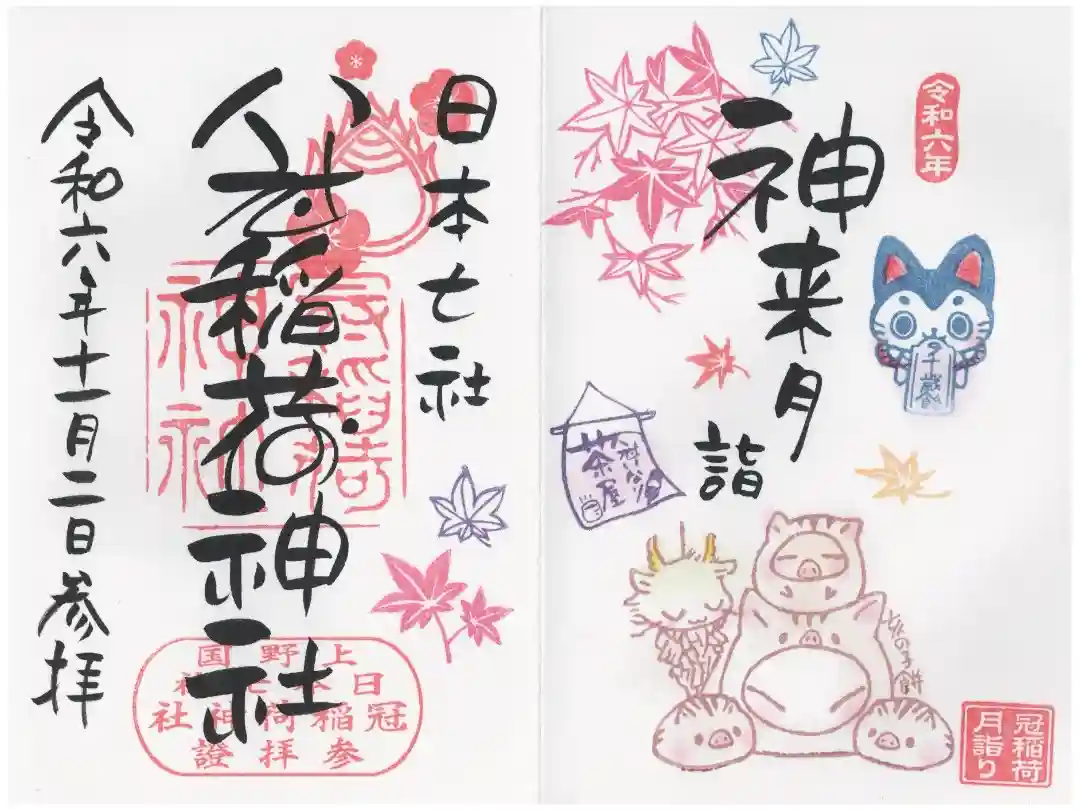 令和六年
神来月
詣
千歳
茶屋
亥の子餅
冠稲荷
月詣り
日本七社
冠稲荷神社
令和六年十一月二日参拝
上野国
日本七社
冠稲荷神社
参拝證